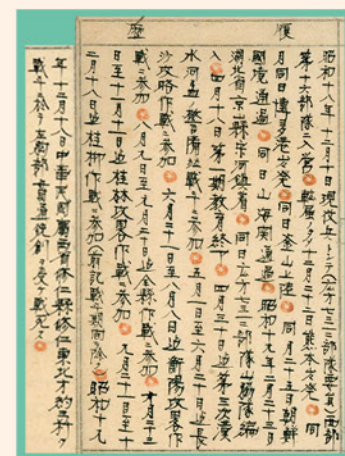 履歴
昭和十八年十二月十日現役兵トシテ部隊要員西部
第十六部隊ニ入営 転属ノタメ十二月二十三日熊本出発 同
月同日博多港出発 同日釜山上陸 同月二十五日朝鮮
國境通過 同日山海関通過 昭和十九年二月二十三日
湖北省京山縣宋河鎮着 同日部隊山砲隊編
入 四月十八日第一期教育終了 四月三十日迄第三次漢
水河 警備 作戦ニ参加 五月一日至六月二十日迄長
沙攻略作戦ニ参加 六月二十一日至八月八日迄衡陽攻略作
戦ニ参加 八月九日至九月二十日迄全縣作戦ニ参加
日至十一月十一日迄桂林攻略作戦ニ参加 九月二十一日至十
二月十八日迄桂柳作戦ニ参加(前記戦ニ期間ヲ除ク) 昭和十九
年十二月十八日中華民国廣西省修仁縣修仁東北方約三粁ノ
戦斗ニ於テ左胸部貫通銃創ヲ受ケ戦死ス